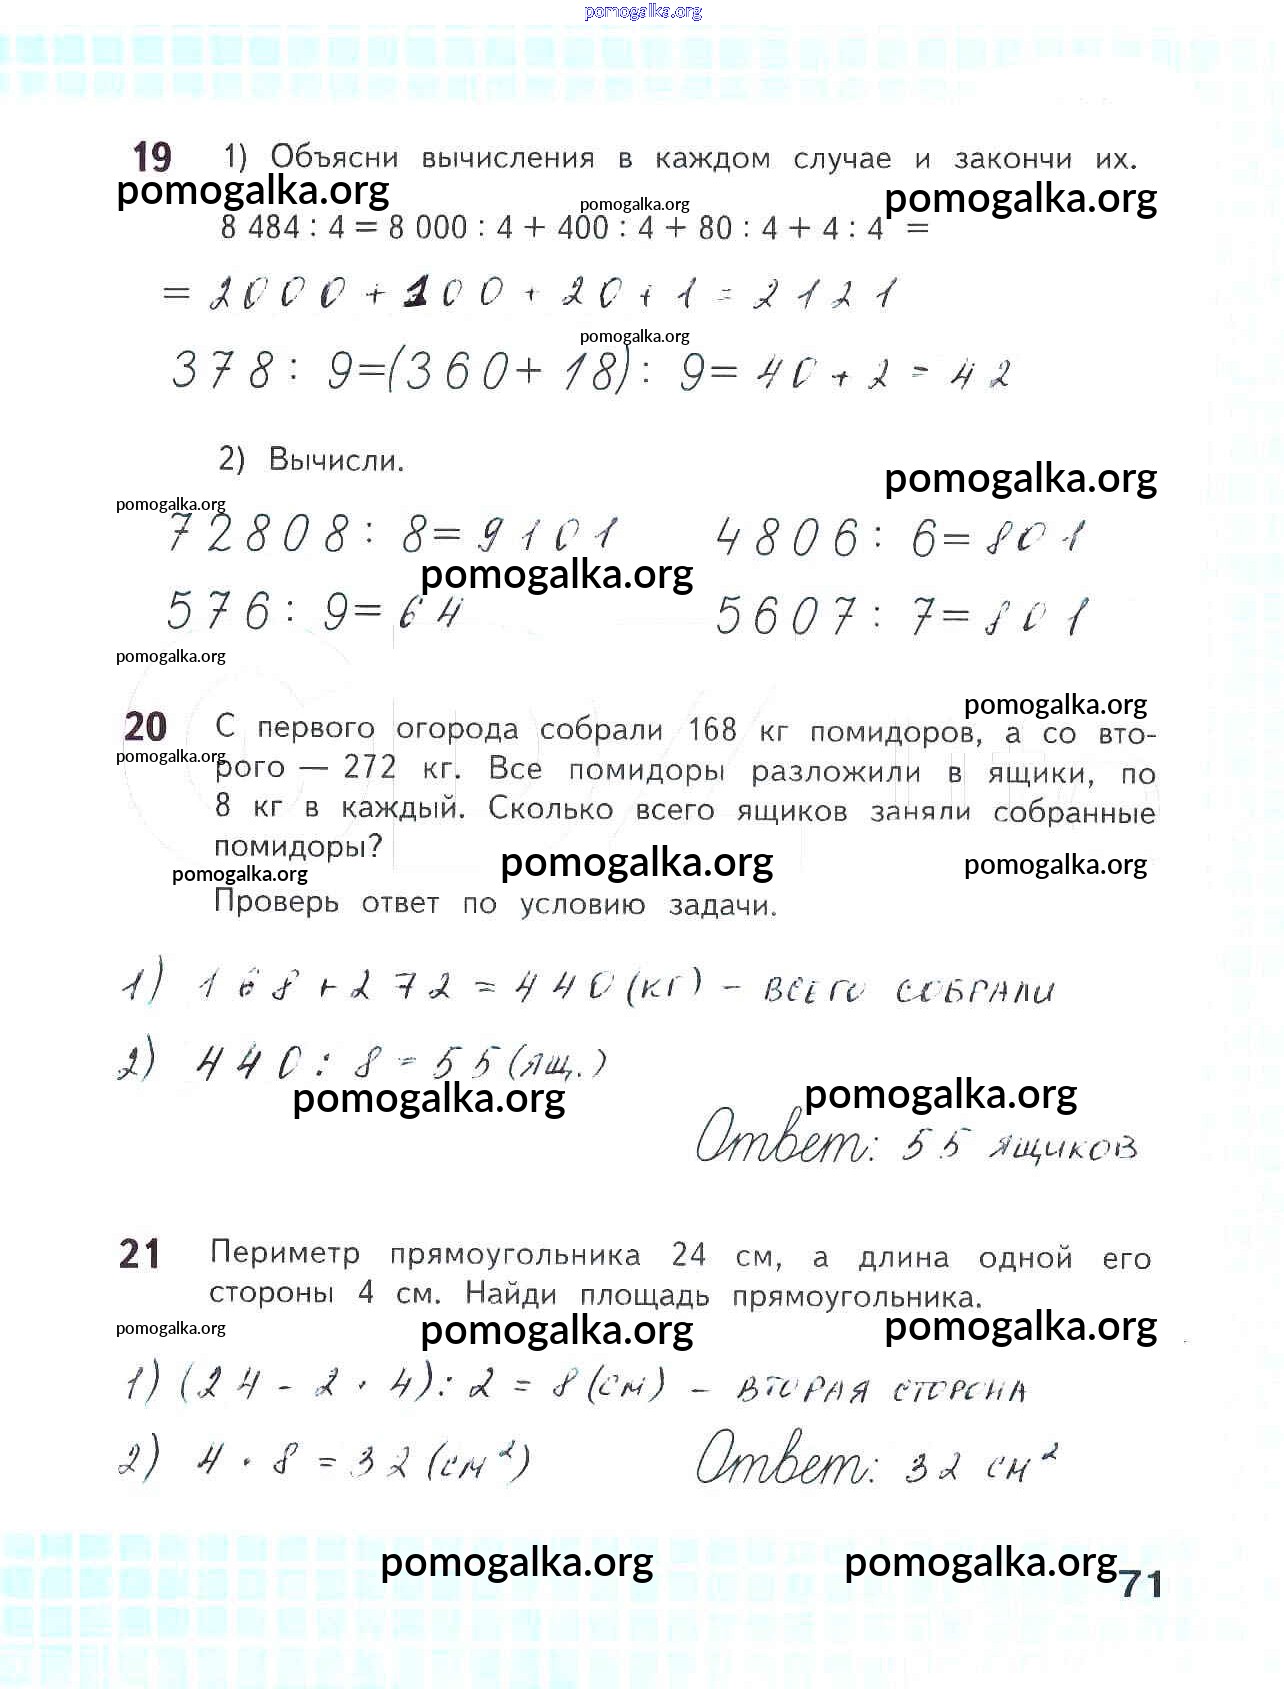 pomogalka.org
19 1) Объясни вычисления в каждом случае и закончи их.
pomogalka.org pomogalka.org pomogalka.org
8 484 : 4 = 8 000 : 4 + 400 : 4 + 80 : 4 + 4 : 4 =
= 2000 + 100 + 20 + 1 = 2121
pomogalka.org
378 : 9 = (360 + 18) : 9 = 40 + 2 = 42
2) Вычисли.
pomogalka.org
pomogalka.org
72808 : 8 = 9101 4806 : 6 = 801
pomogalka.org
576 : 9 = 64 5607 : 7 = 801
pomogalka.org
pomogalka.org
20 С первого огорода собрали 168 кг помидоров, а со вто-
pomogalka.org
рого — 272 кг. Все помидоры разложили в ящики, по
8 кг в каждый. Сколько всего ящиков заняли собранные
помидоры?
pomogalka.org pomogalka.org pomogalka.org
Проверь ответ по условию задачи.
1) 168 + 272 = 440 (кг) - всего собрали
2) 440 : 8 = 55 (ящ.)
pomogalka.org pomogalka.org
Ответ: 55 ящиков
21 Периметр прямоугольника 24 см, а длина одной его
стороны 4 см. Найди площадь прямоугольника.
pomogalka.org pomogalka.org pomogalka.org
1) (24 - 2 · 4) : 2 = 8 (см) - вторая сторона
2) 4 · 8 = 32 (см²) Ответ: 32 см²
pomogalka.org pomogalka.org
71